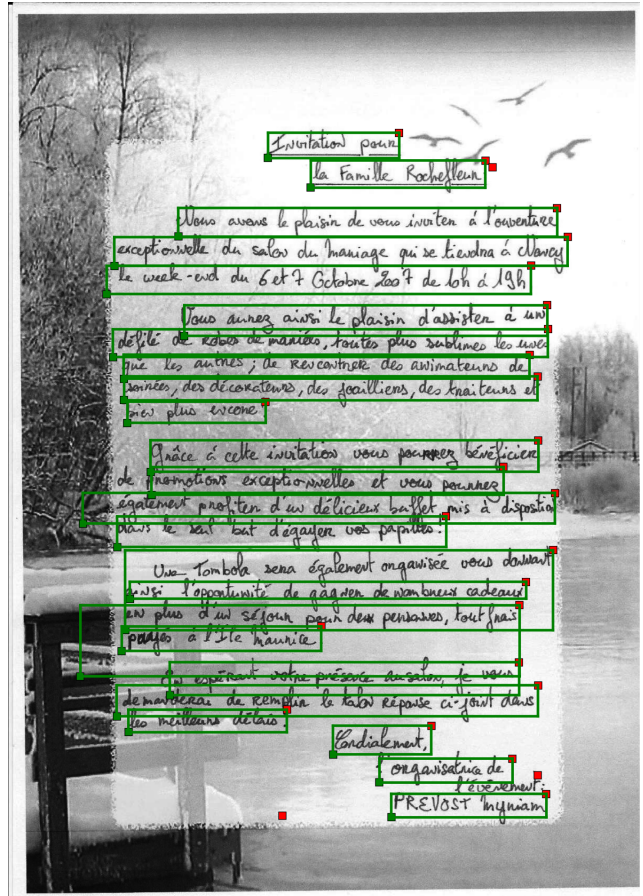 Invitation pour
la Famille Rochefleur
Vous avons le plaisir de vous inviter à l'ouverture
exceptionnelle du salon du mariage qui se tiendra à Nancy
le week-end du 6 et 7 Octobre 2007 de 10h à 19h
Vous aurez ainsi le plaisir d'assister à un
défilé de robes de mariées, toutes plus sublimes les unes
que les autres ; de rencontrer des animateurs de
soirées, des décorateurs, des joailliers, des traiteurs et
bien plus encore
Grâce à cette invitation vous pourrez bénéficier
de promotions exceptionnelles et vous pourrez
également profiter d'un délicieux buffet mis à disposition
dans le seul but d'égayer vos papilles.
Une Tombola sera également organisée vous donnant
ainsi l'opportunité de gagner de nombreux cadeaux
en plus d'un séjour pour deux personnes, tout frais
payés à l'Ile Maurice
En espérant votre présence au salon, je vous
demanderai de remplir le talon réponse ci-joint dans
les meilleurs délais
Cordialement,
l'organisatrice de
l'évènement:
PREVOST Myriam